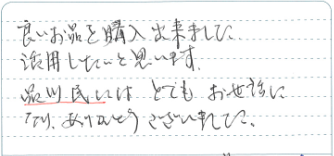 良いお品を購入出来ました.
活用したいと思います.
品川氏にはとてもお世話に
なり、ありがとうございました.